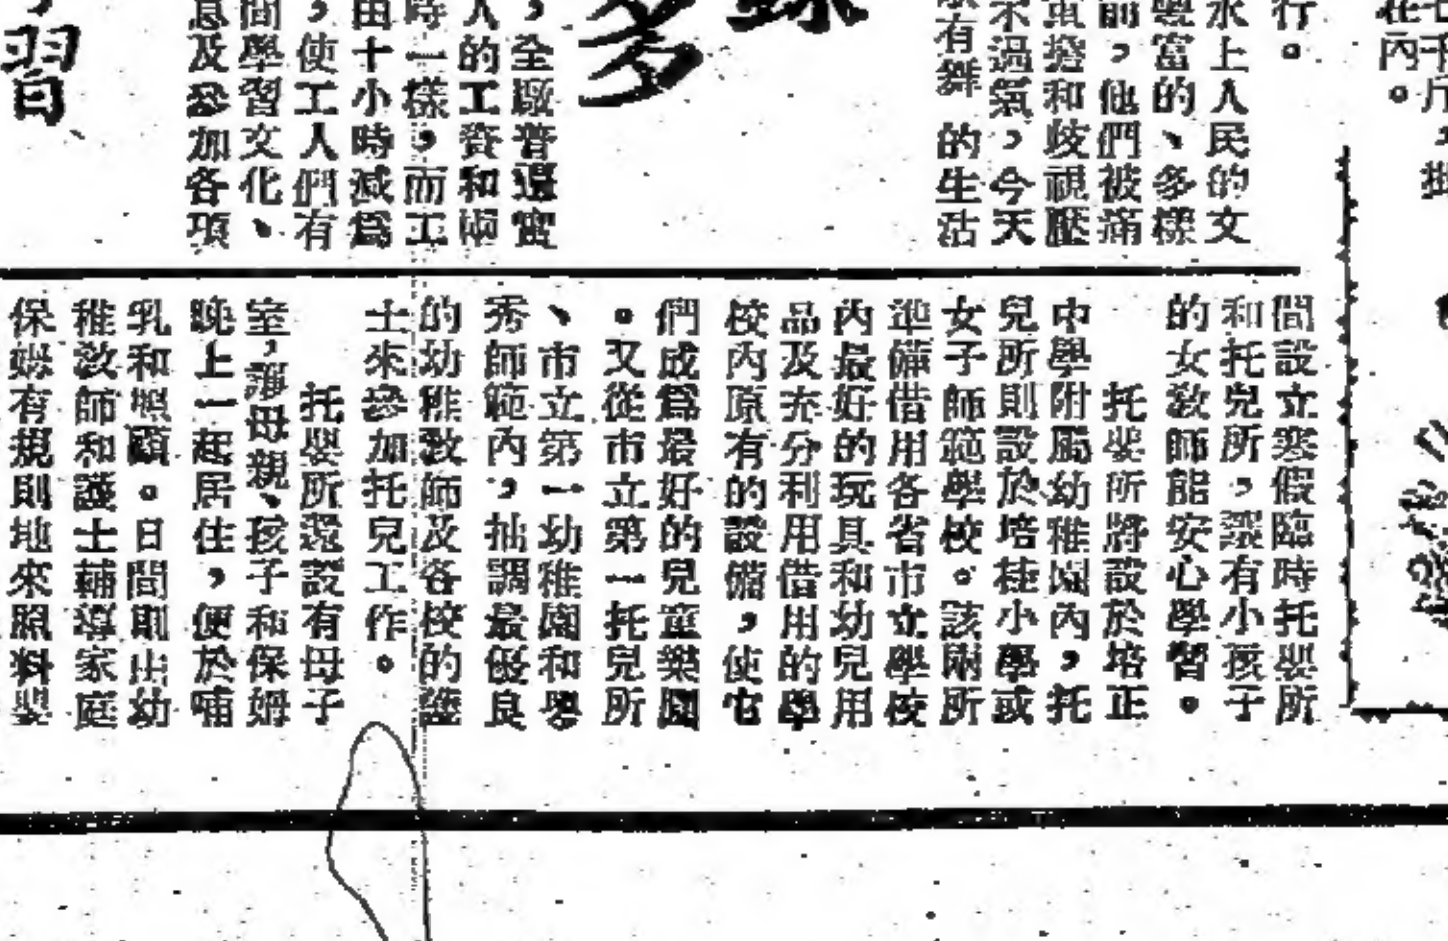 七千斤，
在內。
行。
水上人民的文
富的、多樣
前，他們被
和歧視壓
不過氣，今天
有 的生活
錄
多
，全廠普遍實
人的工資和
時一樣，而工
由十小時減爲
，使工人們有
間學習文化、
息及參加各項
習
間設立寒假臨時托嬰所
和托兒所，讓有小孩子
的女教師能安心學習。
托嬰所將設於培正
中學附屬幼稚園內，托
兒所則設於培桂小學或
女子師範學校。該兩所
準備借用各省市立學校
內最好的玩具和幼兒用
品及充分利用借用的學
校內原有的設備，使它
們成爲最好的兒童樂園
。又從市立第一托兒所
、市立第一幼稚園和粤
秀師範內，抽調最優良
的幼稚教師及各校的護
士來參加托兒工作。
托嬰所還設有母子
室，讓母親、孩子和保姆
晚上一起居住，便於哺
乳和照顧。日間則由幼
稚教師和護士輔導家庭
保姆有規則地來照料嬰